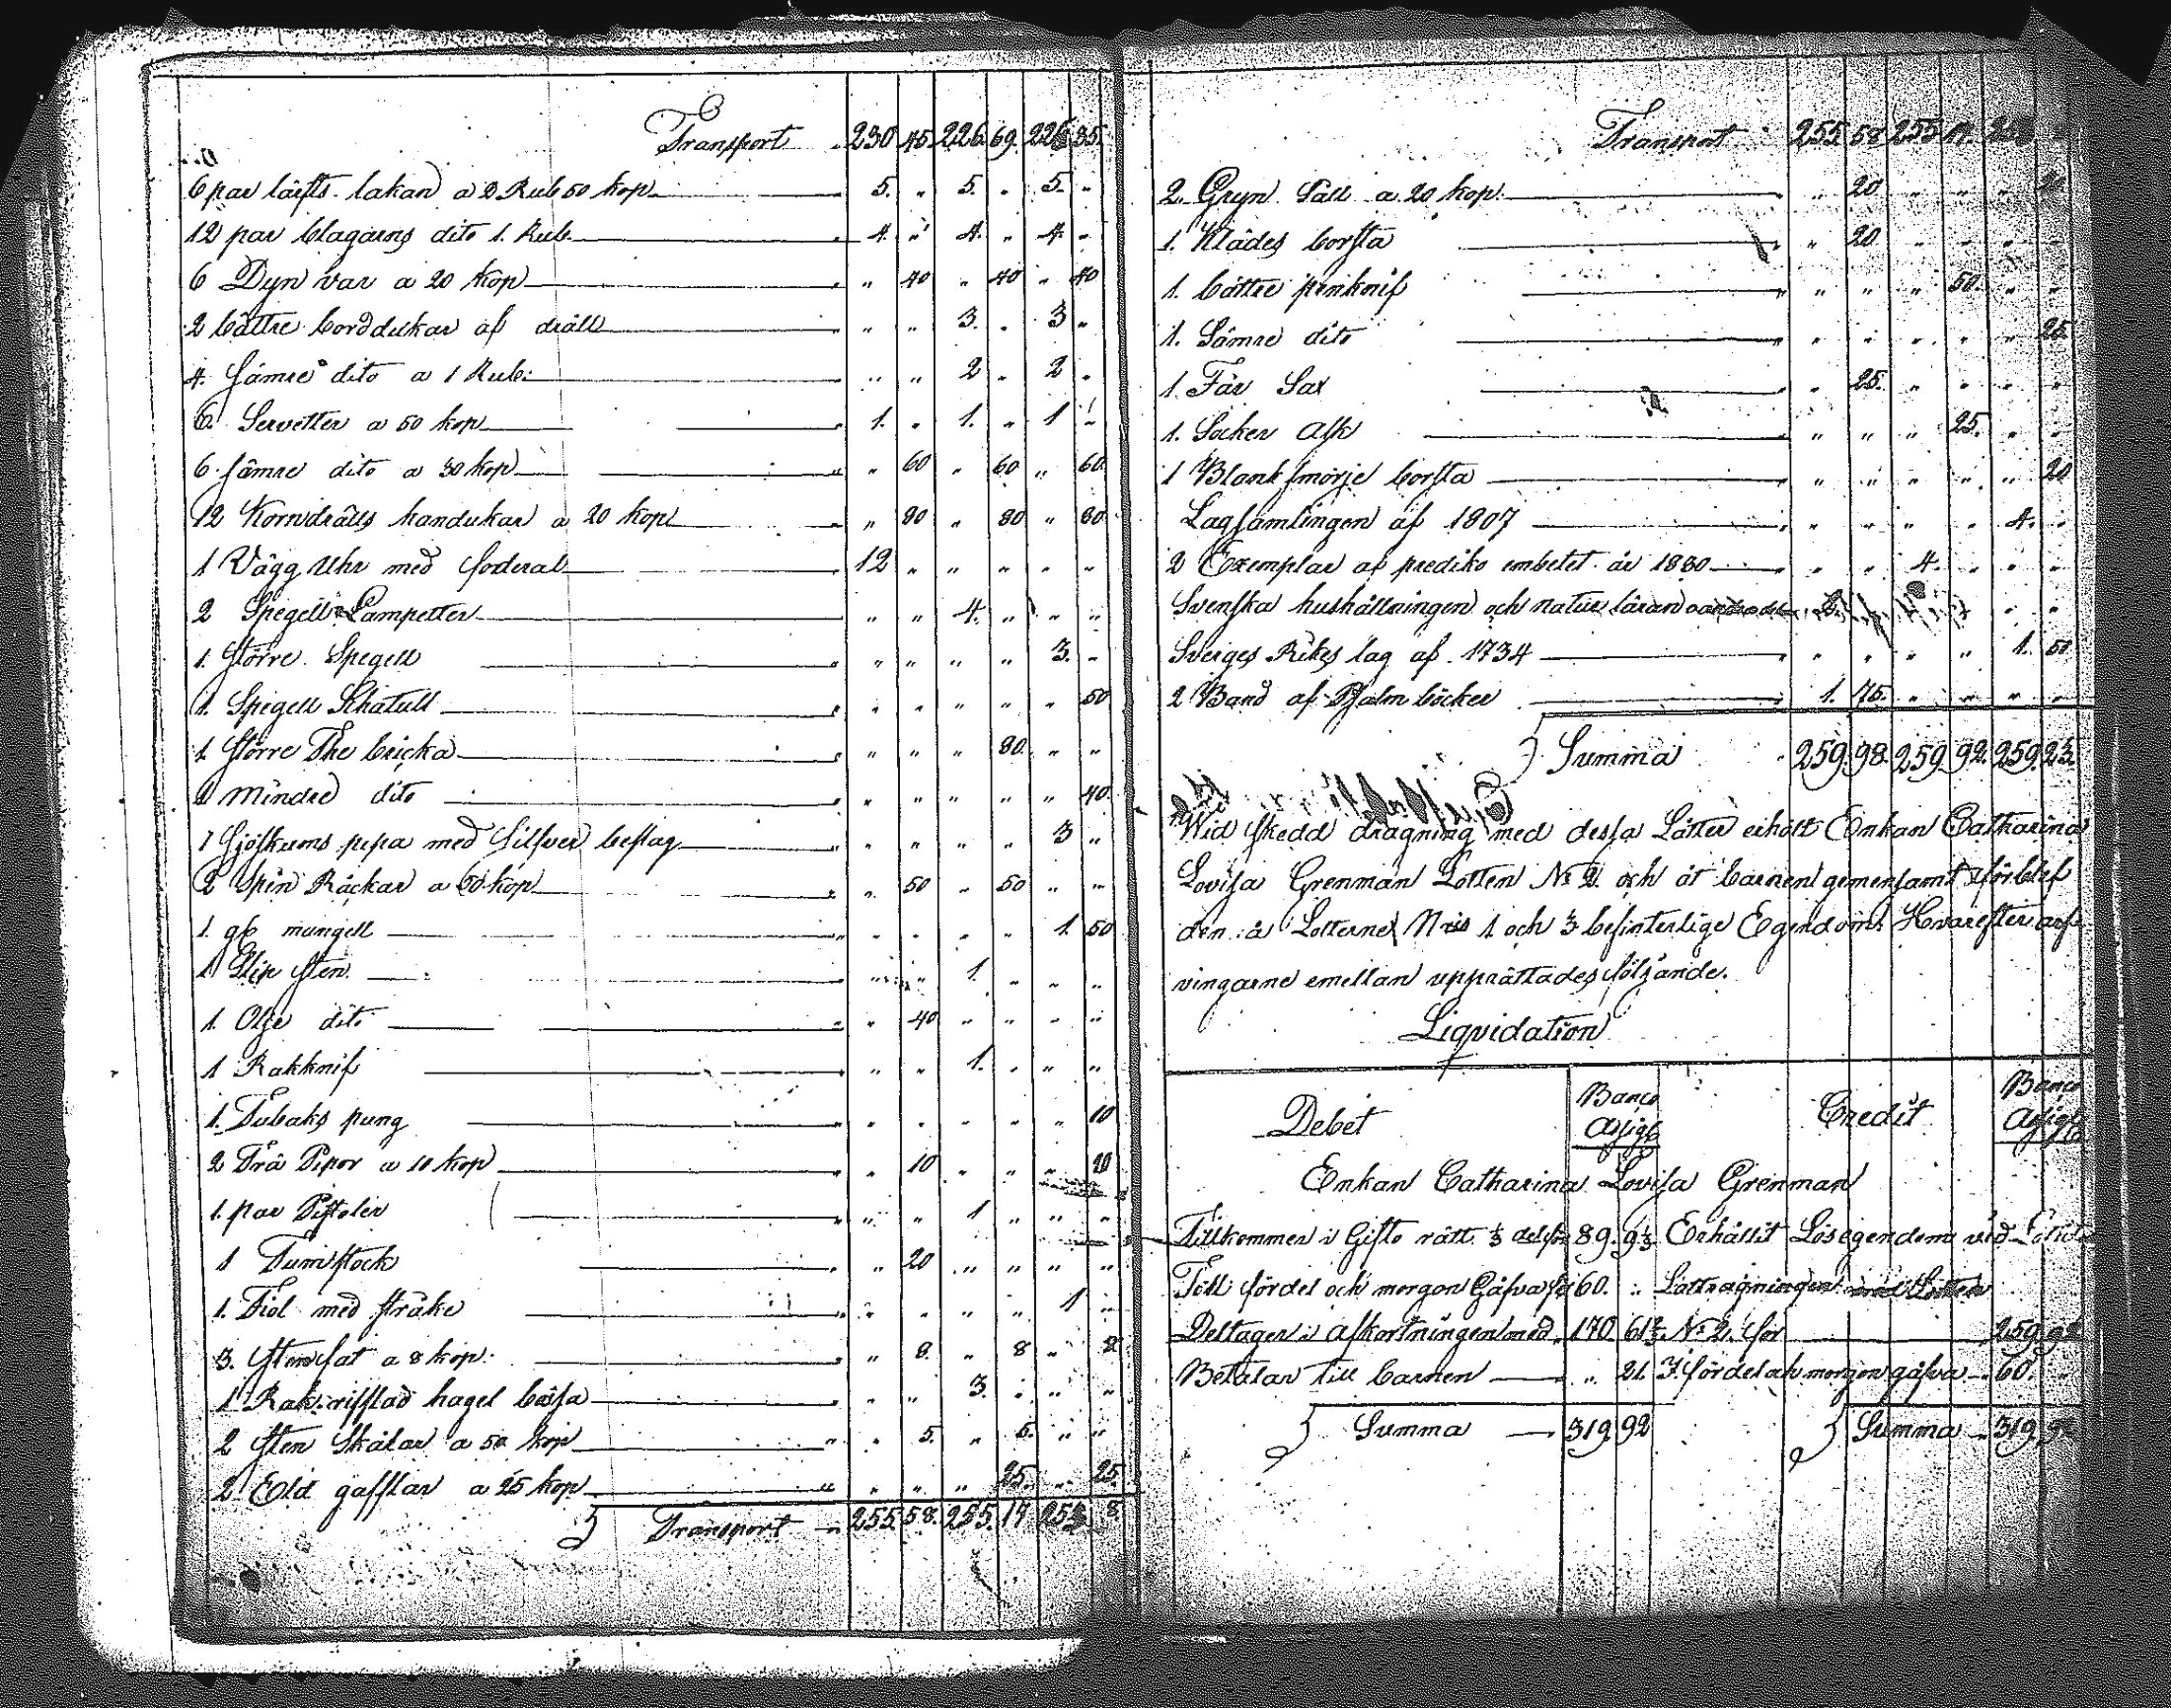 Transport 230 45 226 69 226 35
6 par lärfts lakan a 2 Rub 50 kop 5. „ 5. „ 5. „
12 par blagarns dito 1. Rub. 4. „ 4. „ 4. „
6 Dyn var a 20 kop „ 40 „ 40 „ 40
2 bättre borddukar af dräll „ „ 3. „ 3 „
4. sämre dito a 1 Rub: „ „ 2 „ 2 „
6. Servetter a 50 kop 1. „ 1. „ 1 „
6 sämre dito a 30 kop „ 60 „ 60 „ 60
12 Korndrälls handukar a 20 kop „ 80 „ 80 „ 80
1 Vägg Uhr med foderal 12 „ „ „ „ „
2 Spegell Lampetter „ „ 4. „ „ „
1. större Spegell „ „ „ „ 3. „
1. Spegell Schatull „ „ „ „ „ 50
1 större The bricka „ „ „ 80. „ „
1 mindre dito „ „ „ „ „ 40.
1 Sjöskums pipa med Silfver beslag „ „ „ „ 3 „
2 Spin Råckar a 50 kop „ 50 „ 50 „ „
1. gl mangell „ „ „ „ 1. 50
1 Slip sten „ „ 1 „ „ „
1. Olje dito „ 40 „ „ „ „
1 Rakknif „ „ 1. „ „ „
1. Tubaks pung „ „ „ „ „ 10
2 Trä Pipor a 10 kop „ 10 „ „ „ 10
1. par Pistoler „ „ 1 „ „ „
1 Tumstock „ 20 „ „ „ „
1. Fiol med stråke „ „ „ „ 1 „
3. stenfat a 8 kop: „ 8. „ 8 „ 8
1 Rak rifflad hagel bössa „ „ 3. „ „ „
2 sten Skålar a 5 kop „ 5. „ 5. „ „
2 Eld gafflar a 25 kop „ „ „ 25. „ 25.
Transport 255 58. 255. 17 253. 8
Transport 255 58 255 17. 253
2. Gryn Såll a 20 kop. „ 20 „ „ „ 20
1. Klädes borsta „ 20 „ „ „ „
1. bättre penknif „ „ „ 50. „ „
1. Sämre dito „ „ „ „ „ 25
1. Får Sax „ 25. „ „ „ „
1. Socker Ask „ „ „ 25. „ „
1 Blanksmörje borsta „ „ „ „ „ 20
Lagsamlingen af 1807 „ „ „ „ 4. „
2 Exemplar af prediko embetet år 1830 „ „ 4. „ „ „
Svenska hushållningen och natur läran
Sveriges Rikes lag af 1734 „ „ „ „ 1. 50
2 Band af Psalm böcker 1. 75. „ „ „ „
Summa 259. 98. 259 92. 259 23.
Wid skedd dragning med dessa Låtter erhöll Enkan Catharina
Lovisa Grenman Lotten No 2. och åt barnen gemensamt förblef
den å Lotterne Nris 1 och 3 befinterlige Egendom: Hvarefter arf-
vingarne emellan upprättades följande.
Liquidation
Debet Banco Assigl Credit Banco Assigl
Enkan Catharina Lovisa Grenman
Tillkommer i Gifto rätt 1/3 del för 89. 9 1/3 Erhållit Lösegendom vid
Till fördel och morgon Gåfva för 60. „ Lottragningen
Deltager i afkortningen med 170 61 2/3. No 2. för 259 92
Betalar till barnen „ 21. I fördel och morgon gåfva 60. „
Summa 319 92 Summa 319